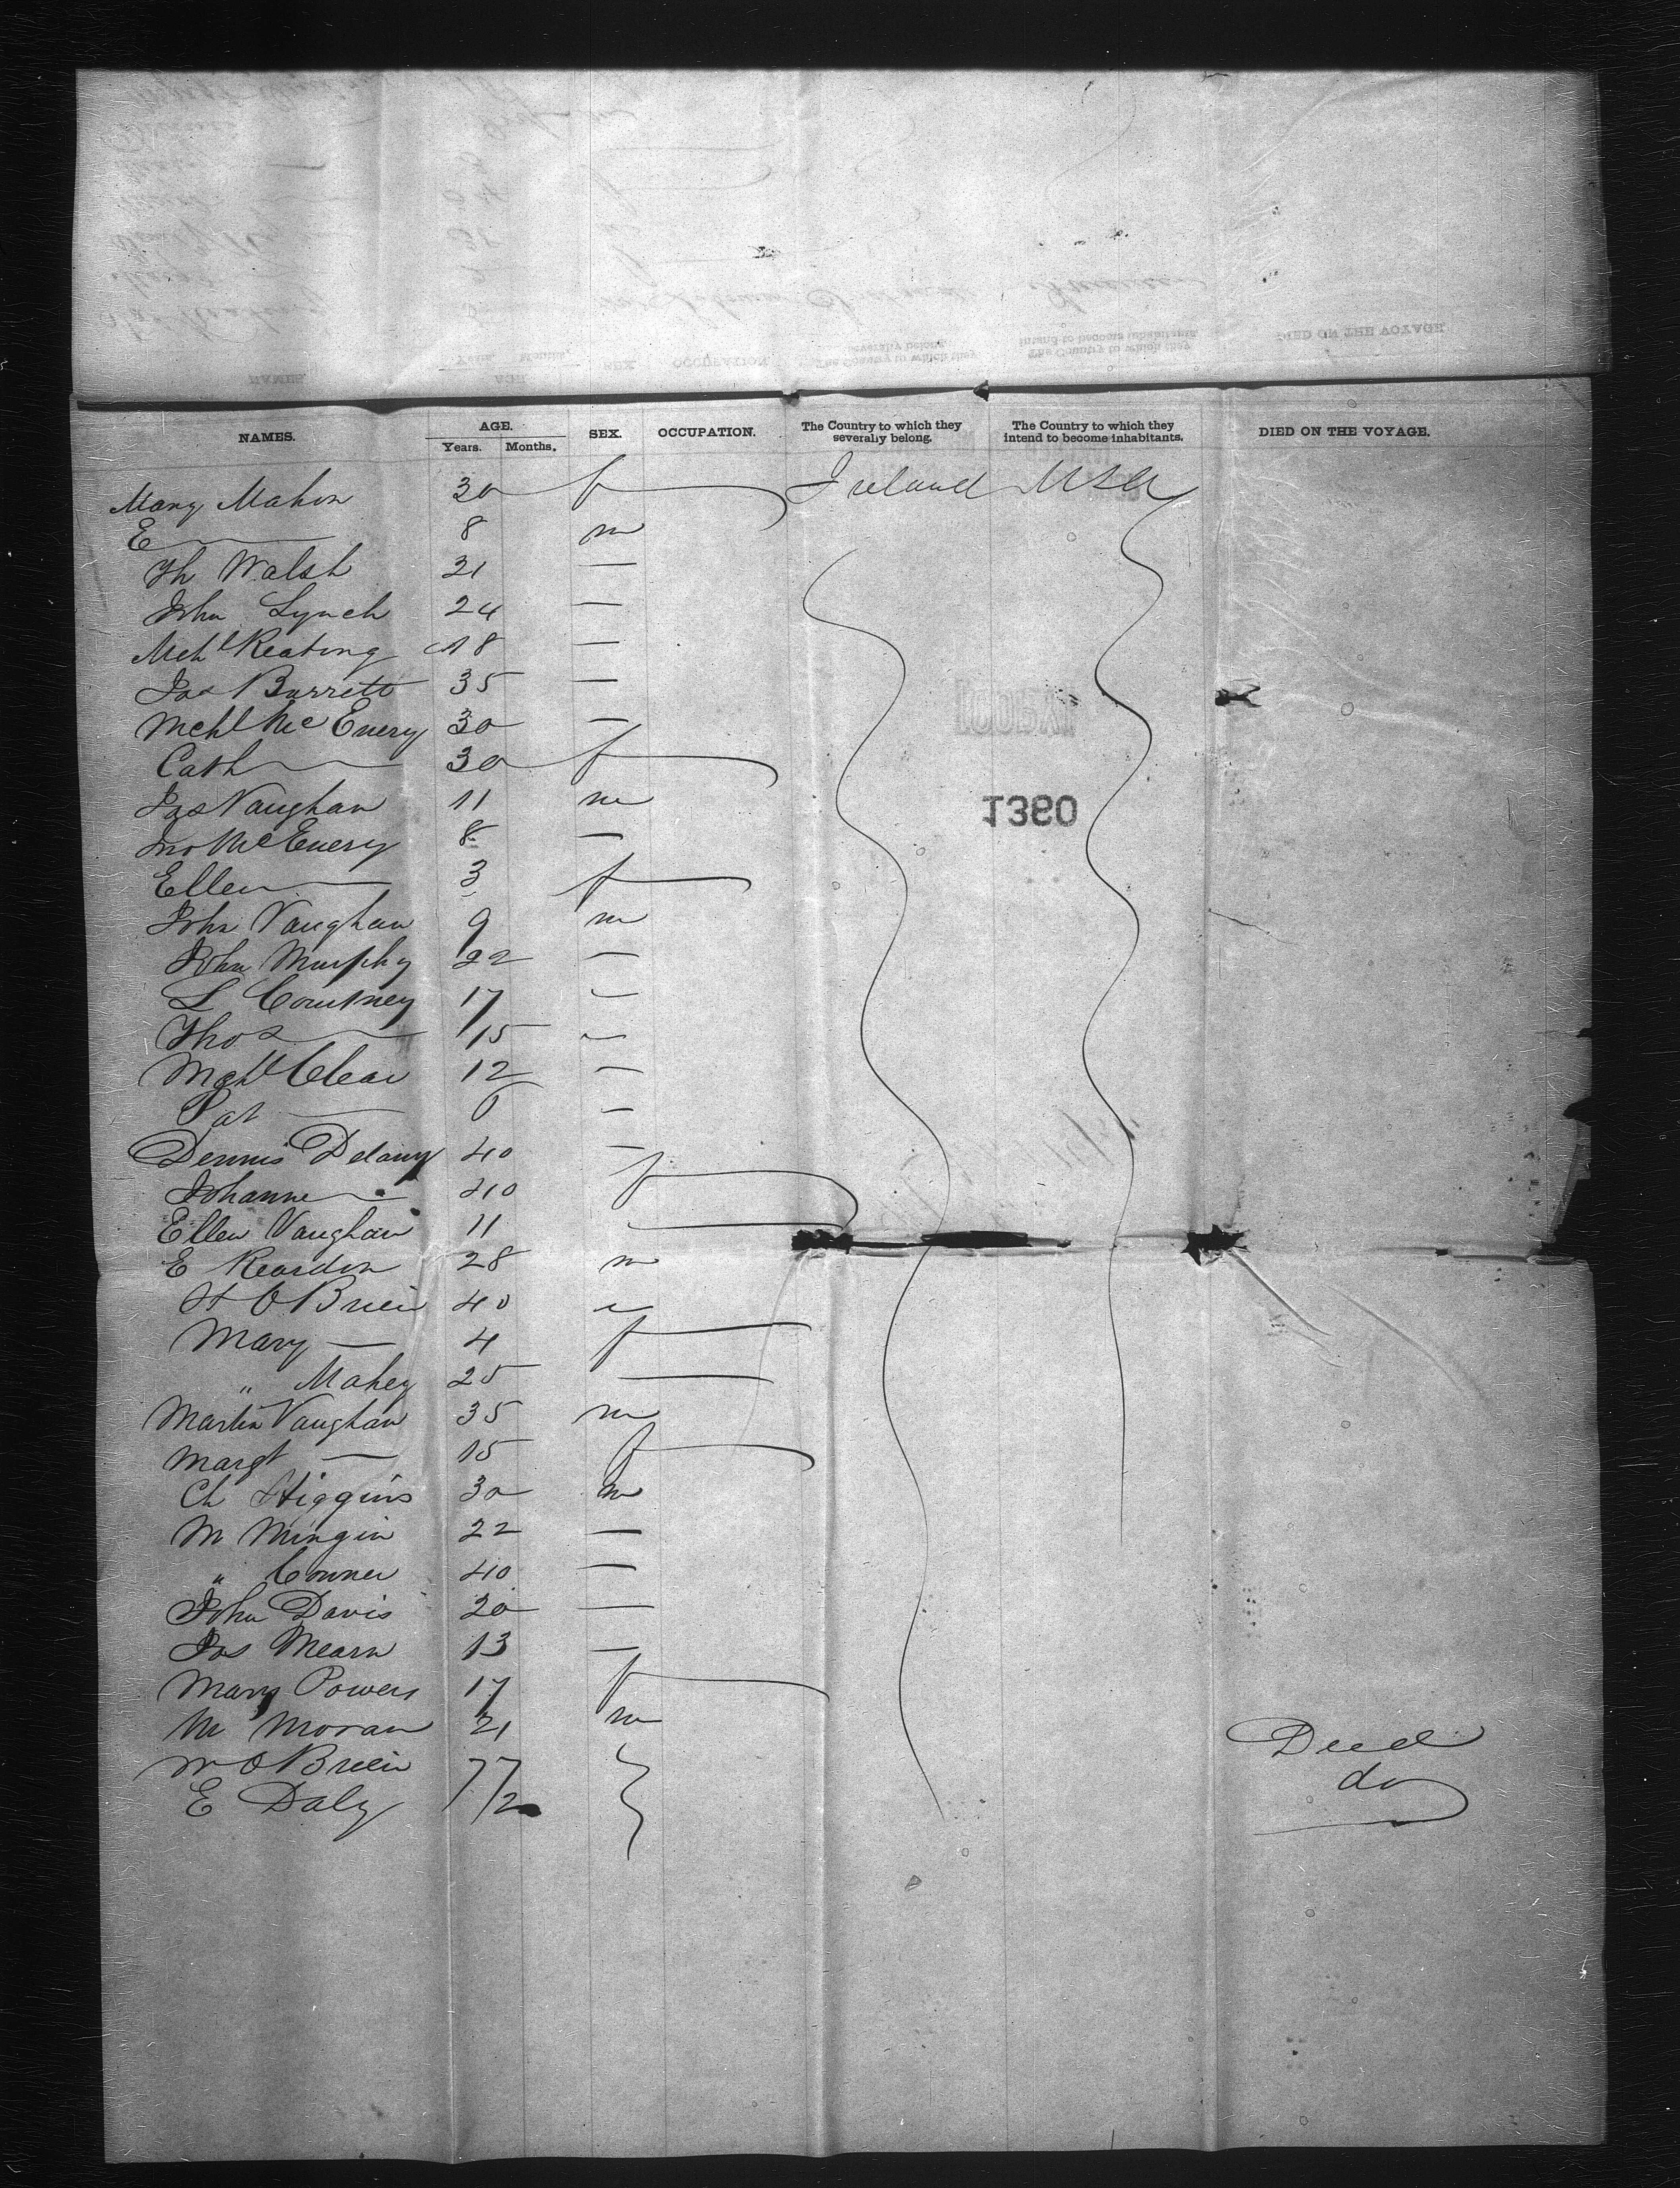 NAMES. AGE. Years. Months. SEX. OCCUPATION. The Country to which they severally belong. The Country to which they intend to become inhabitants. DIED ON THE VOYAGE.
Mary Mahon 30 f Ireland USA
E — 8 m
Th Walsh 21 —
John Lynch 24 —
Mchl Keating 18 —
Jas Barrett 35 —
Mchl McEnery 30 —
Cath — 30 f
Jas Vaughan 11 m
Jno McEnery 8 —
1360
Ellen — 3 f
John Vaughan 9 m
John Murphy 22 —
L Courtney 17 —
Thos — 15 —
Clear 12 —
Pat — 6 —
Dennis Delany 40 —
Johanne — 40 f
Ellen Vaughan 11 —
E Reardon 28 m
O Brien 40
Mary — 4 f
" Mahey 25 —
Martin Vaughan 35 m
Margt — 15 f
Ch Higgins 30 m
M Mingin 22 —
" Conner 40 —
John Davis 20 —
Jas Mearn 13 —
Mary Powers 17 f
M Moran 21 m
O Brien 77 Died
E Daly 1/2 do